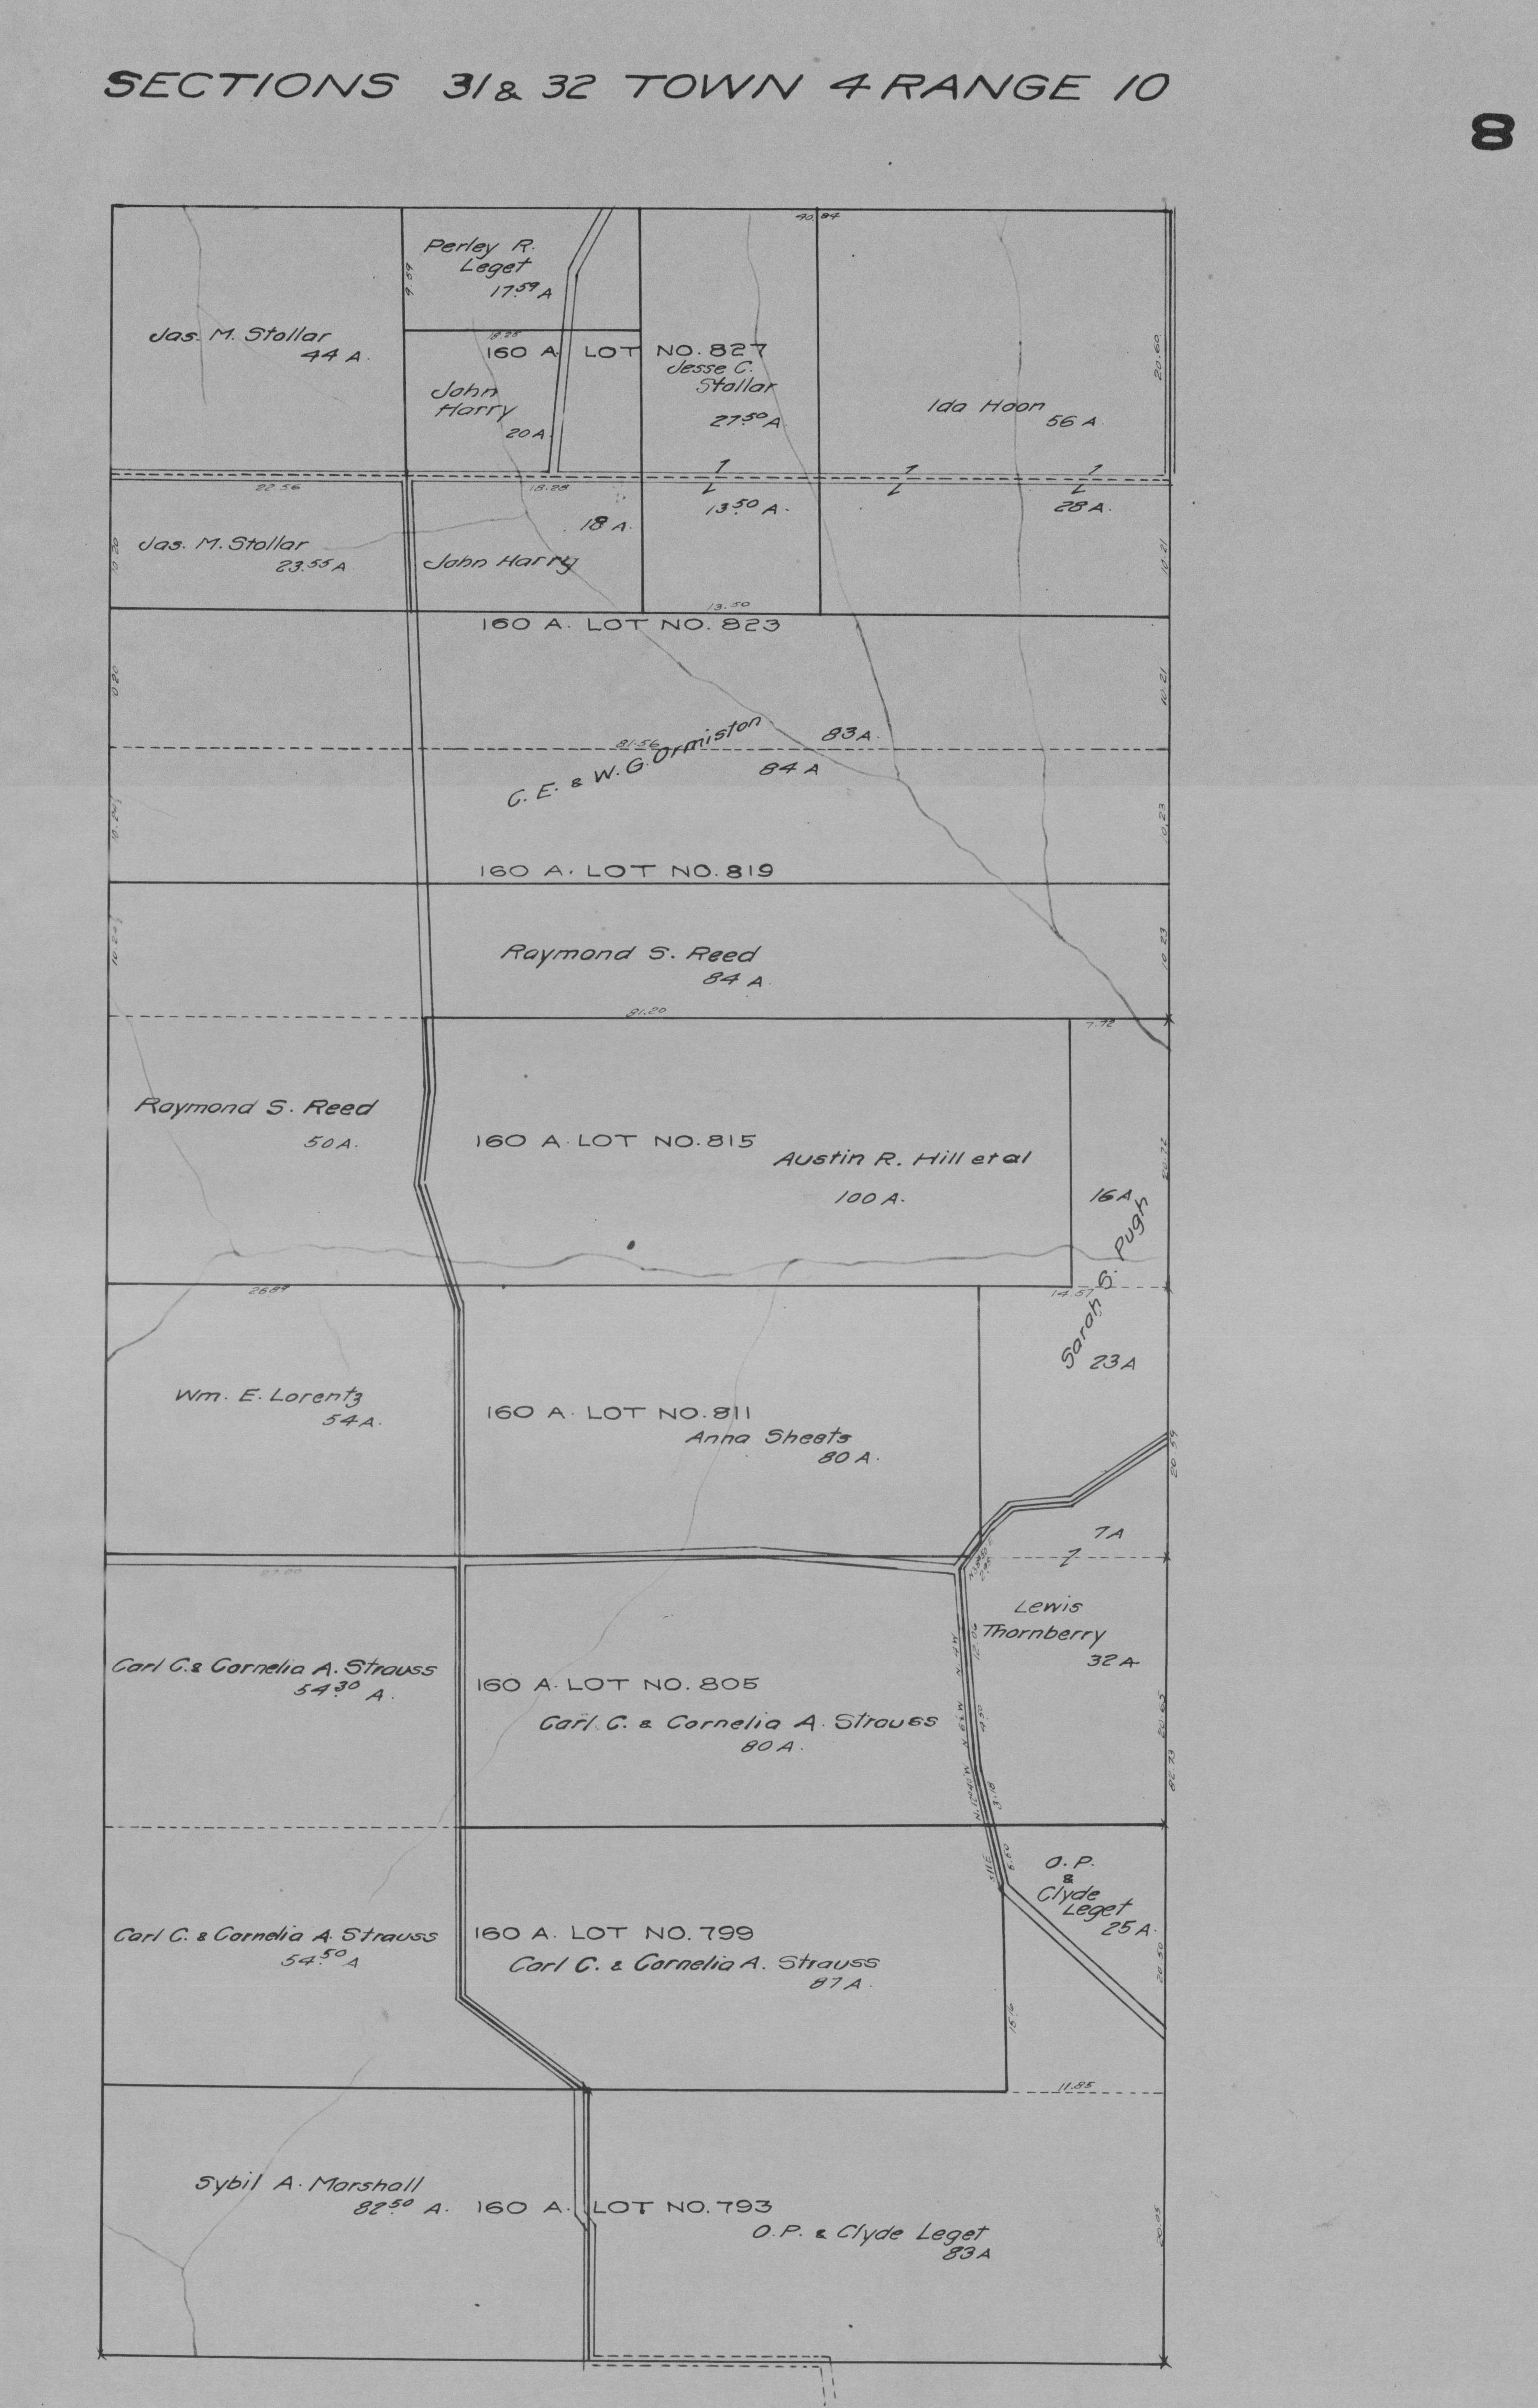 SECTIONS 31 & 32 TOWN 4 RANGE 10
8
40.84
Perley R.
Leget
17.59 A
Jas. M. Stollar
44 A.
18.25
160 A. LOT NO. 827
Jesse C.
Stollar
27.50 A.
John
Harry
20 A.
Ida Hoon
56 A.
20.60
22.56
18.28
13.50 A.
28 A.
18 A.
Jas. M. Stollar
23.55 A
John Harry
10.21
13.50
160 A. LOT NO. 823
10.21
81.56
C. E. & W. G. Ormiston
83 A.
84 A
10.23
160 A. LOT NO. 819
Raymond S. Reed
84 A.
10.23
81.20
7.72
Raymond S. Reed
50 A.
160 A. LOT NO. 815
Austin R. Hill et al
100 A.
16 A.
Sarah S. Pugh
23 A
26.87
14.57
Wm. E. Lorentz
54 A.
160 A. LOT NO. 811
Anna Sheets
80 A.
20.59
7 A
Lewis
Thornberry
32 A
Carl C. & Cornelia A. Strauss
54.30 A.
160 A. LOT NO. 805
Carl C. & Cornelia A. Strauss
80 A.
12.06
4.50
3.18
20.65
82.73
O. P.
&
Clyde
Leget
25 A.
Carl C. & Cornelia A. Strauss
54.50 A
160 A. LOT NO. 799
Carl C. & Cornelia A. Strauss
87 A.
20.50
15.16
11.85
Sybil A. Marshall
82.50 A.
160 A. LOT NO. 793
O. P. & Clyde Leget
83 A